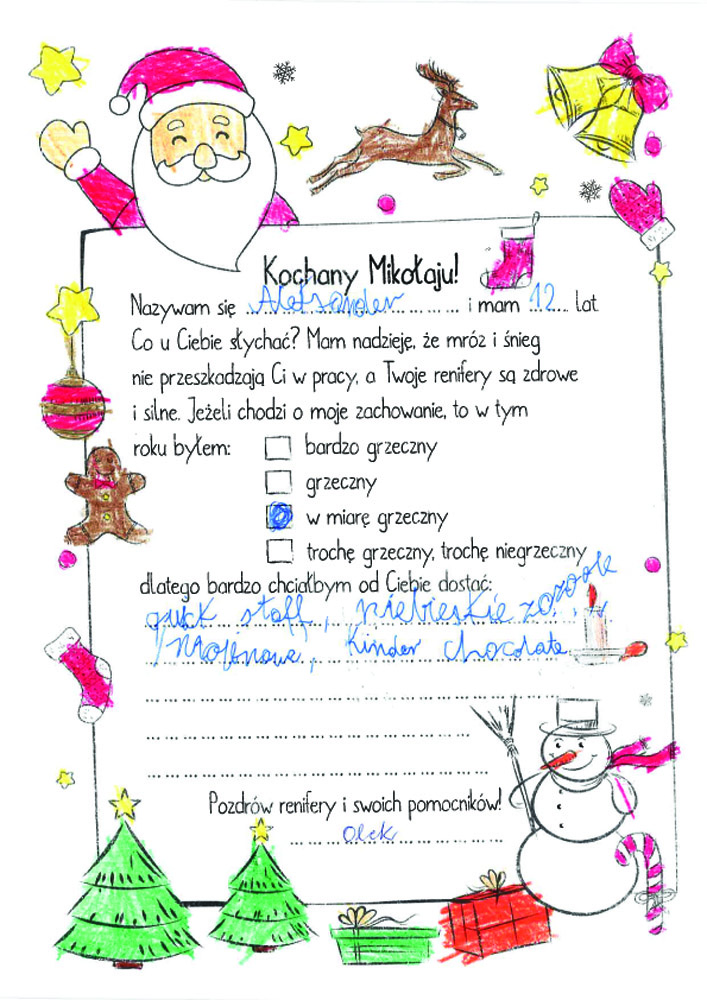 Kochany Mikołaju!
Nazywam się Aleksander i mam 12 lat
Co u Ciebie słychać? Mam nadzieję, że mróz i śnieg
nie przeszkadzają Ci w pracy, a Twoje renifery są zdrowe
i silne. Jeżeli chodzi o moje zachowanie, to w tym
roku byłem:
bardzo grzeczny
grzeczny
w miarę grzeczny
trochę grzeczny, trochę niegrzeczny
dlatego bardzo chciałbym od Ciebie dostać:
staff, niebieskie
Kinder chocolate
Pozdrów renifery i swoich pomocników!
Olek